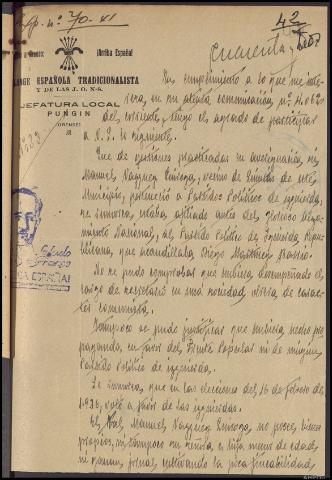 Exp. nº 70. XI
42
¡Arriba España!
FALANGE ESPAÑOLA TRADICIONALISTA
Y DE LAS J. O. N-S.
JEFATURA LOCAL
PUNGIN
(ORENSE)
En cumplimiento a lo que me
en su atenta comunicación, nº
del corriente, tengo el agrado de participar
a V. S. lo siguiente:
Que de gestiones practicadas en averiguación si
Manuel Vazquez Quiroga, vecino de de este
Municipio, perteneció a Partidos Políticos de izquierda,
se rumorea, estaba afiliado antes del Glorioso Alza-
miento Nacional, al Partido Político de Izquierda Repu-
blicana, que acaudillaba Diego Martinez Barrio.
No se pudo comprobar que hubiera desempeñado el
cargo de secretario en una sociedad obrera de carac-
ter comunista.
Tampoco se pudo justificar que hubiera hecho pro-
paganda, en favor del Frente Popular ni de ningún
Partido Político de izquierda.
Se rumorea, que en las elecciones del 16 de febrero de
1.936, votó a favor de las izquierdas.
El tal, Manuel Vazquez Quiroga, no posee bienes
propios, ni tampoco su señora, e hijo menor de edad,
ni ganan jornal, cultivando la poca